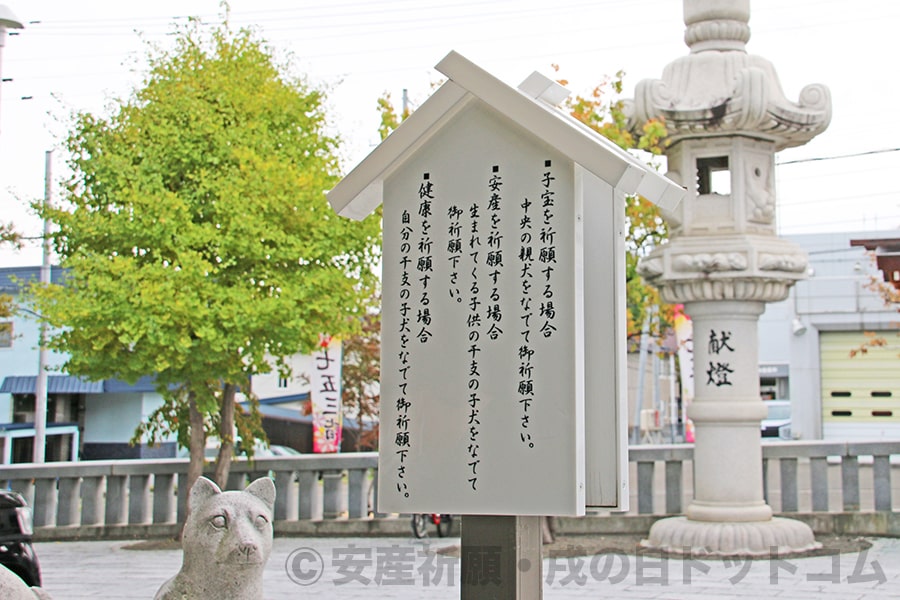 ■子宝を祈願する場合
中央の親犬をなでて御祈願下さい。
■安産を祈願する場合
生まれてくる子供の干支の子犬をなでて
御祈願下さい。
■健康を祈願する場合
自分の干支の子犬をなでて御祈願下さい。
献燈
七五三詣
©安産祈願・戌の日ドットコム